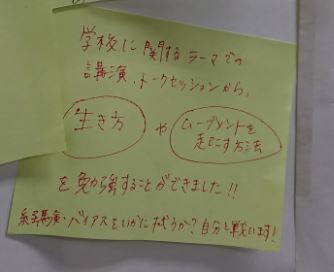 学校に関するテーマでの
講演、トークセッションから、
生き方 や ムーブメントを
起こす方法
を勉強することができました!!
バイアスをいかに払うか?自分と戦います!